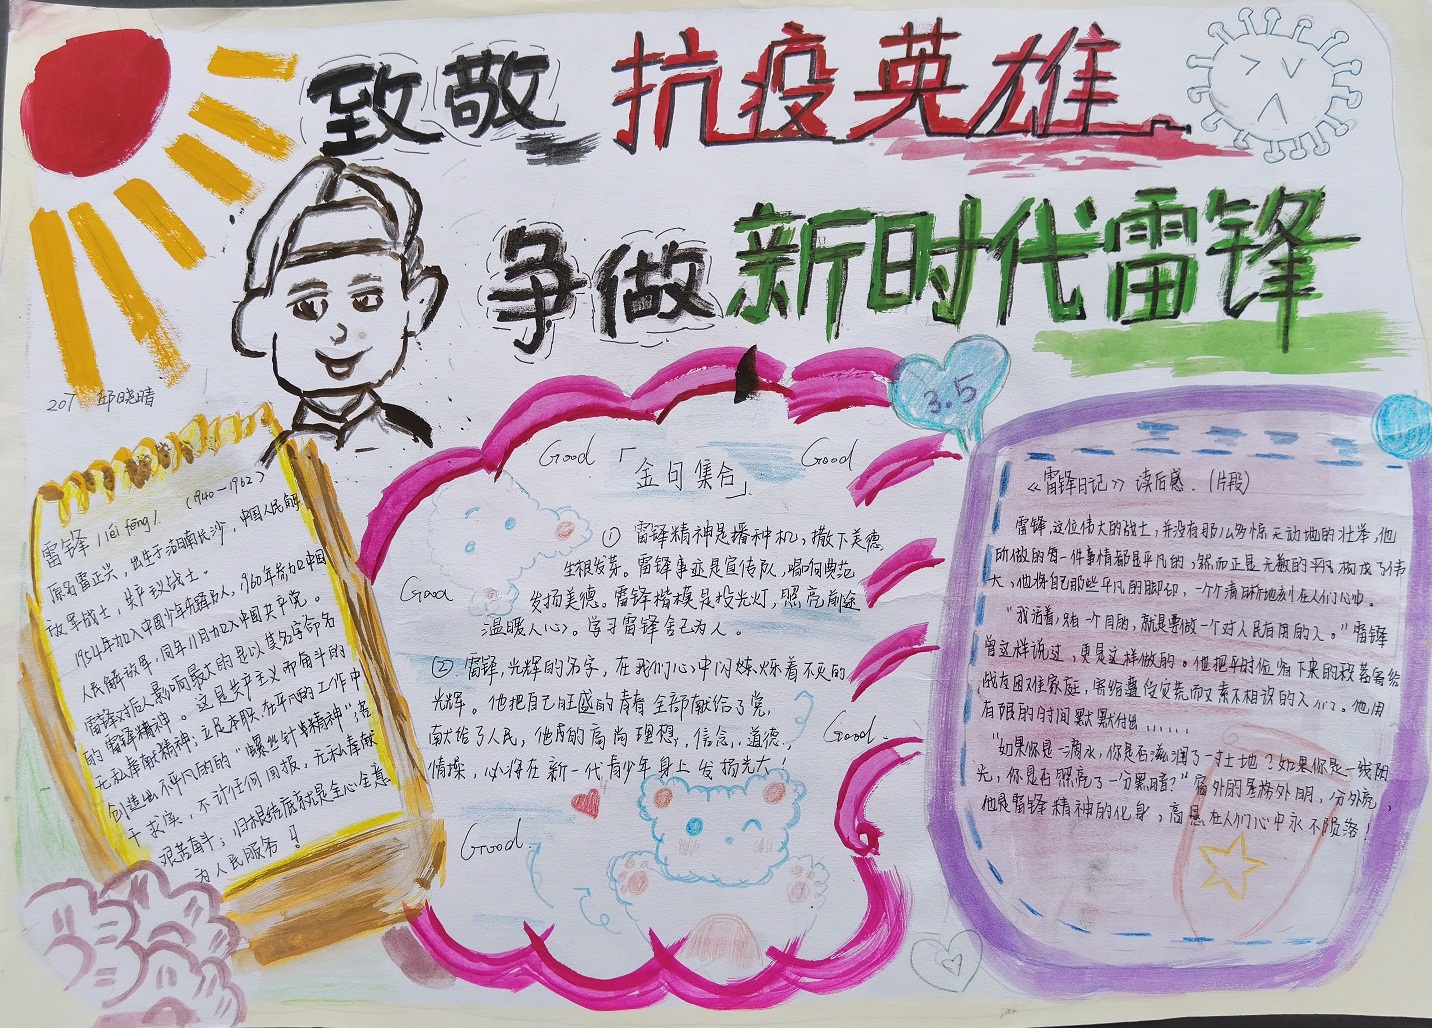 致敬 抗疫英雄
争做 新时代雷锋
3.5
207 邱晓晴
雷锋 léi fēng
(1940-1962)
原名雷正兴，出生于湖南长沙，中国人民解
放军战士，共产主义战士。
1954年加入中国少年先锋队，1960年参加中国
人民解放军，同年11月加入中国共产党。
雷锋对后人影响最大的是以其名字命名
的雷锋精神。这是共产主义而奋斗的
无私奉献精神；立足本职、在平凡的工作中
创造出不平凡的的“螺丝钉精神”；苦
干求实，不计任何回报，无私奉献
艰苦奋斗；归根结底就是全心全意
为人民服务！
Good 「金句集合」 Good
① 雷锋精神是播种机，撒下美德，
生根发芽。雷锋事迹是宣传队，唱响典范
Good 发扬美德。雷锋楷模是投光灯，照亮前途
温暖人心。学习雷锋舍己为人。
② 雷锋，光辉的名字，在我们心中闪烁着不灭的
光辉。他把自己旺盛的青春全部献给了党，
献给了人民，他的高尚理想，信念，道德， Good
情操，必将在新一代青少年身上发扬光大！
Good
《雷锋日记》读后感.（片段）
雷锋，这位伟大的战士，并没有那么多惊天动地的壮举，他
所做的每一件事情都是平凡的，然而正是无数的平凡构成了伟
大，他将自己那些平凡的脚印，一个个清晰地刻在人们心中。
“我活着，只有一个目的，就是要做一个对人民有用的人。”雷锋
曾这样说过，更是这样做的。他把平时省下来的积蓄寄给
战友困难家庭，寄给遭受灾荒而又素不相识的人们。他用
有限的时间默默付出……
“如果你是一滴水，你是否滋润了一寸土地？如果你是一线阳
光，你是否照亮了一分黑暗？”窗外的星格外明，分外亮，
他是雷锋精神的化身，高悬在人们心中永不陨落！